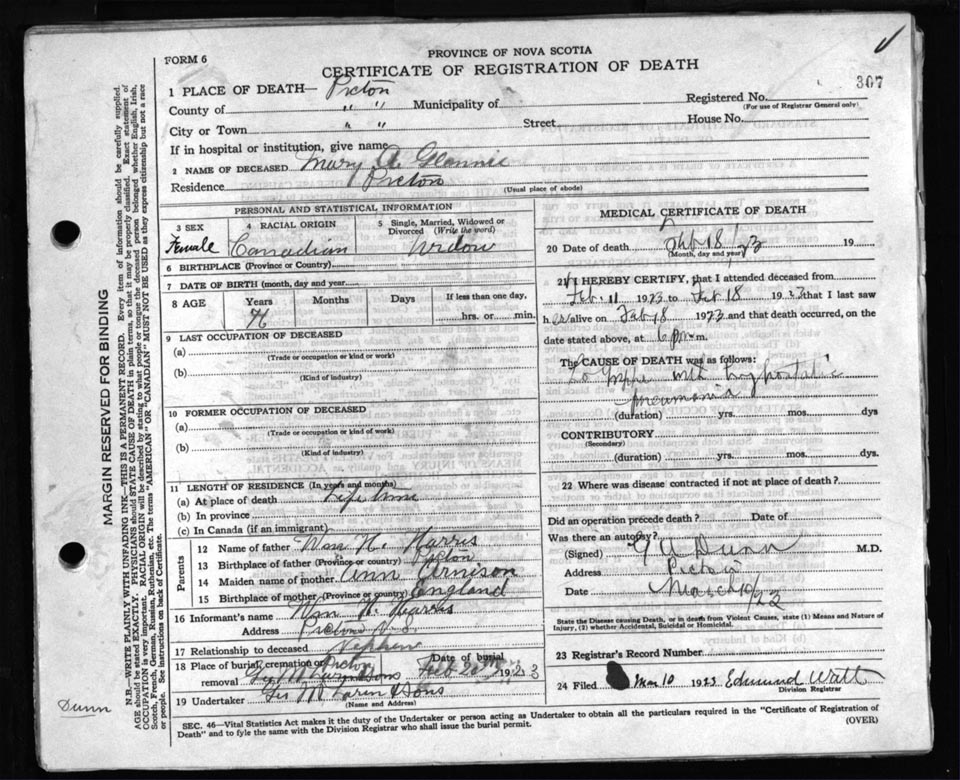 PROVINCE OF NOVA SCOTIA
FORM 6
CERTIFICATE OF REGISTRATION OF DEATH
307
1 PLACE OF DEATH— Pictou
County of " " Municipality of
Registered No.
(For use of Registrar General only)
City or Town " " Street House No.
If in hospital or institution, give name
2 NAME OF DECEASED Mary A. Glennie
Residence Pictou
(Usual place of abode)
PERSONAL AND STATISTICAL INFORMATION
3 SEX 4 RACIAL ORIGIN 5 Single, Married, Widowed or Divorced (Write the word)
Female Canadian Widow
6 BIRTHPLACE (Province or Country)
7 DATE OF BIRTH (month, day and year)
8 AGE Years Months Days If less than one day,
hrs. or min.
9 LAST OCCUPATION OF DECEASED
(a)
(Trade or occupation or kind or work)
(b)
(Kind of industry)
10 FORMER OCCUPATION OF DECEASED
(a)
(Trade or occupation or kind of work)
(b)
(Kind of industry)
11 LENGTH OF RESIDENCE (In years and months)
(a) At place of death Life time
(b) In province
(c) In Canada (if an immigrant)
Parents
12 Name of father Wm H. Harris
13 Birthplace of father (Province or country) Pictou
14 Maiden name of mother Ann Arnison
15 Birthplace of mother (Province or country) England
16 Informant's name Wm H. Harris
Address Pictou N.S.
17 Relationship to deceased Nephew
18 Place of burial, cremation or removal Pictou Date of burial Feb 20 1923
19 Undertaker Sons
(Name and Address)
MEDICAL CERTIFICATE OF DEATH
20 Date of death Feb 18/23 19
(Month, day and year)
21 I HEREBY CERTIFY, that I attended deceased from
Feb. 11 1923 to Feb 18 1923 that I last saw
her alive on Feb 18 1923 and that death occurred, on the
date stated above, at 6 p.m.
The CAUSE OF DEATH was as follows:
La Grippe with hypostatic
pneumonia
(duration) yrs. mos. dys
CONTRIBUTORY
(Secondary)
(duration) yrs. mos. dys.
22 Where was disease contracted if not at place of death?
Did an operation precede death? Date of
Was there an autopsy?
(Signed) Dunn M.D.
Address Pictou
Date March 10/23
State the Disease causing Death, or in death from Violent Causes, state (1) Means and Nature of
Injury, (2) whether Accidental, Suicidal or Homicidal.
23 Registrar's Record Number
24 Filed Mar 10 1923 Edmund Watt
Division Registrar
SEC. 46—Vital Statistics Act makes it the duty of the Undertaker or person acting as Undertaker to obtain all the particulars required in the "Certificate of Registration of
Death" and to fyle the same with the Division Registrar who shall issue the burial permit.
(OVER)
MARGIN RESERVED FOR BINDING
N.B.—WRITE PLAINLY WITH UNFADING INK—THIS IS A PERMANENT RECORD. Every item of information should be carefully supplied.
AGE should be stated EXACTLY. PHYSICIANS should STATE CAUSE OF DEATH in plain terms, so that it may be properly classified. Exact statement of
OCCUPATION is very important. RACIAL ORIGIN will be described by stating to what people or tongue the deceased person belonged whether English, Irish,
Scotch, French, German, Russian, Ruthenian, etc. The terms "AMERICAN" OR "CANADIAN" MUST NOT BE USED as they express citizenship but not a race
or people. See instructions on back of Certificate.
Dunn